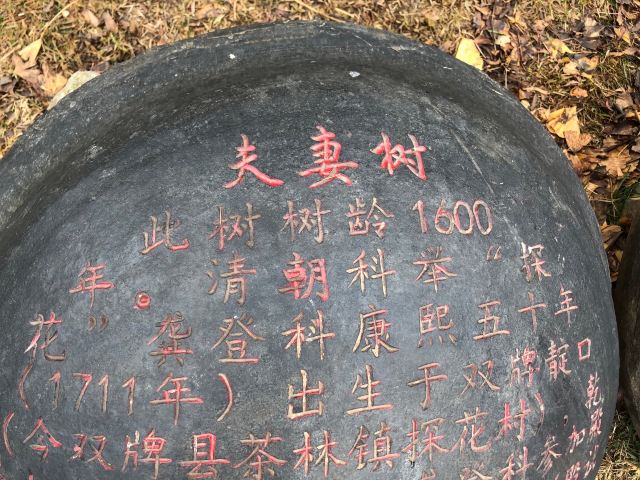 夫妻树
此树树龄1600
年。清朝科举“探
花”龚登科康熙五十年
(1711年)出生于双牌靛口
(今双牌县茶林镇探花村),乾